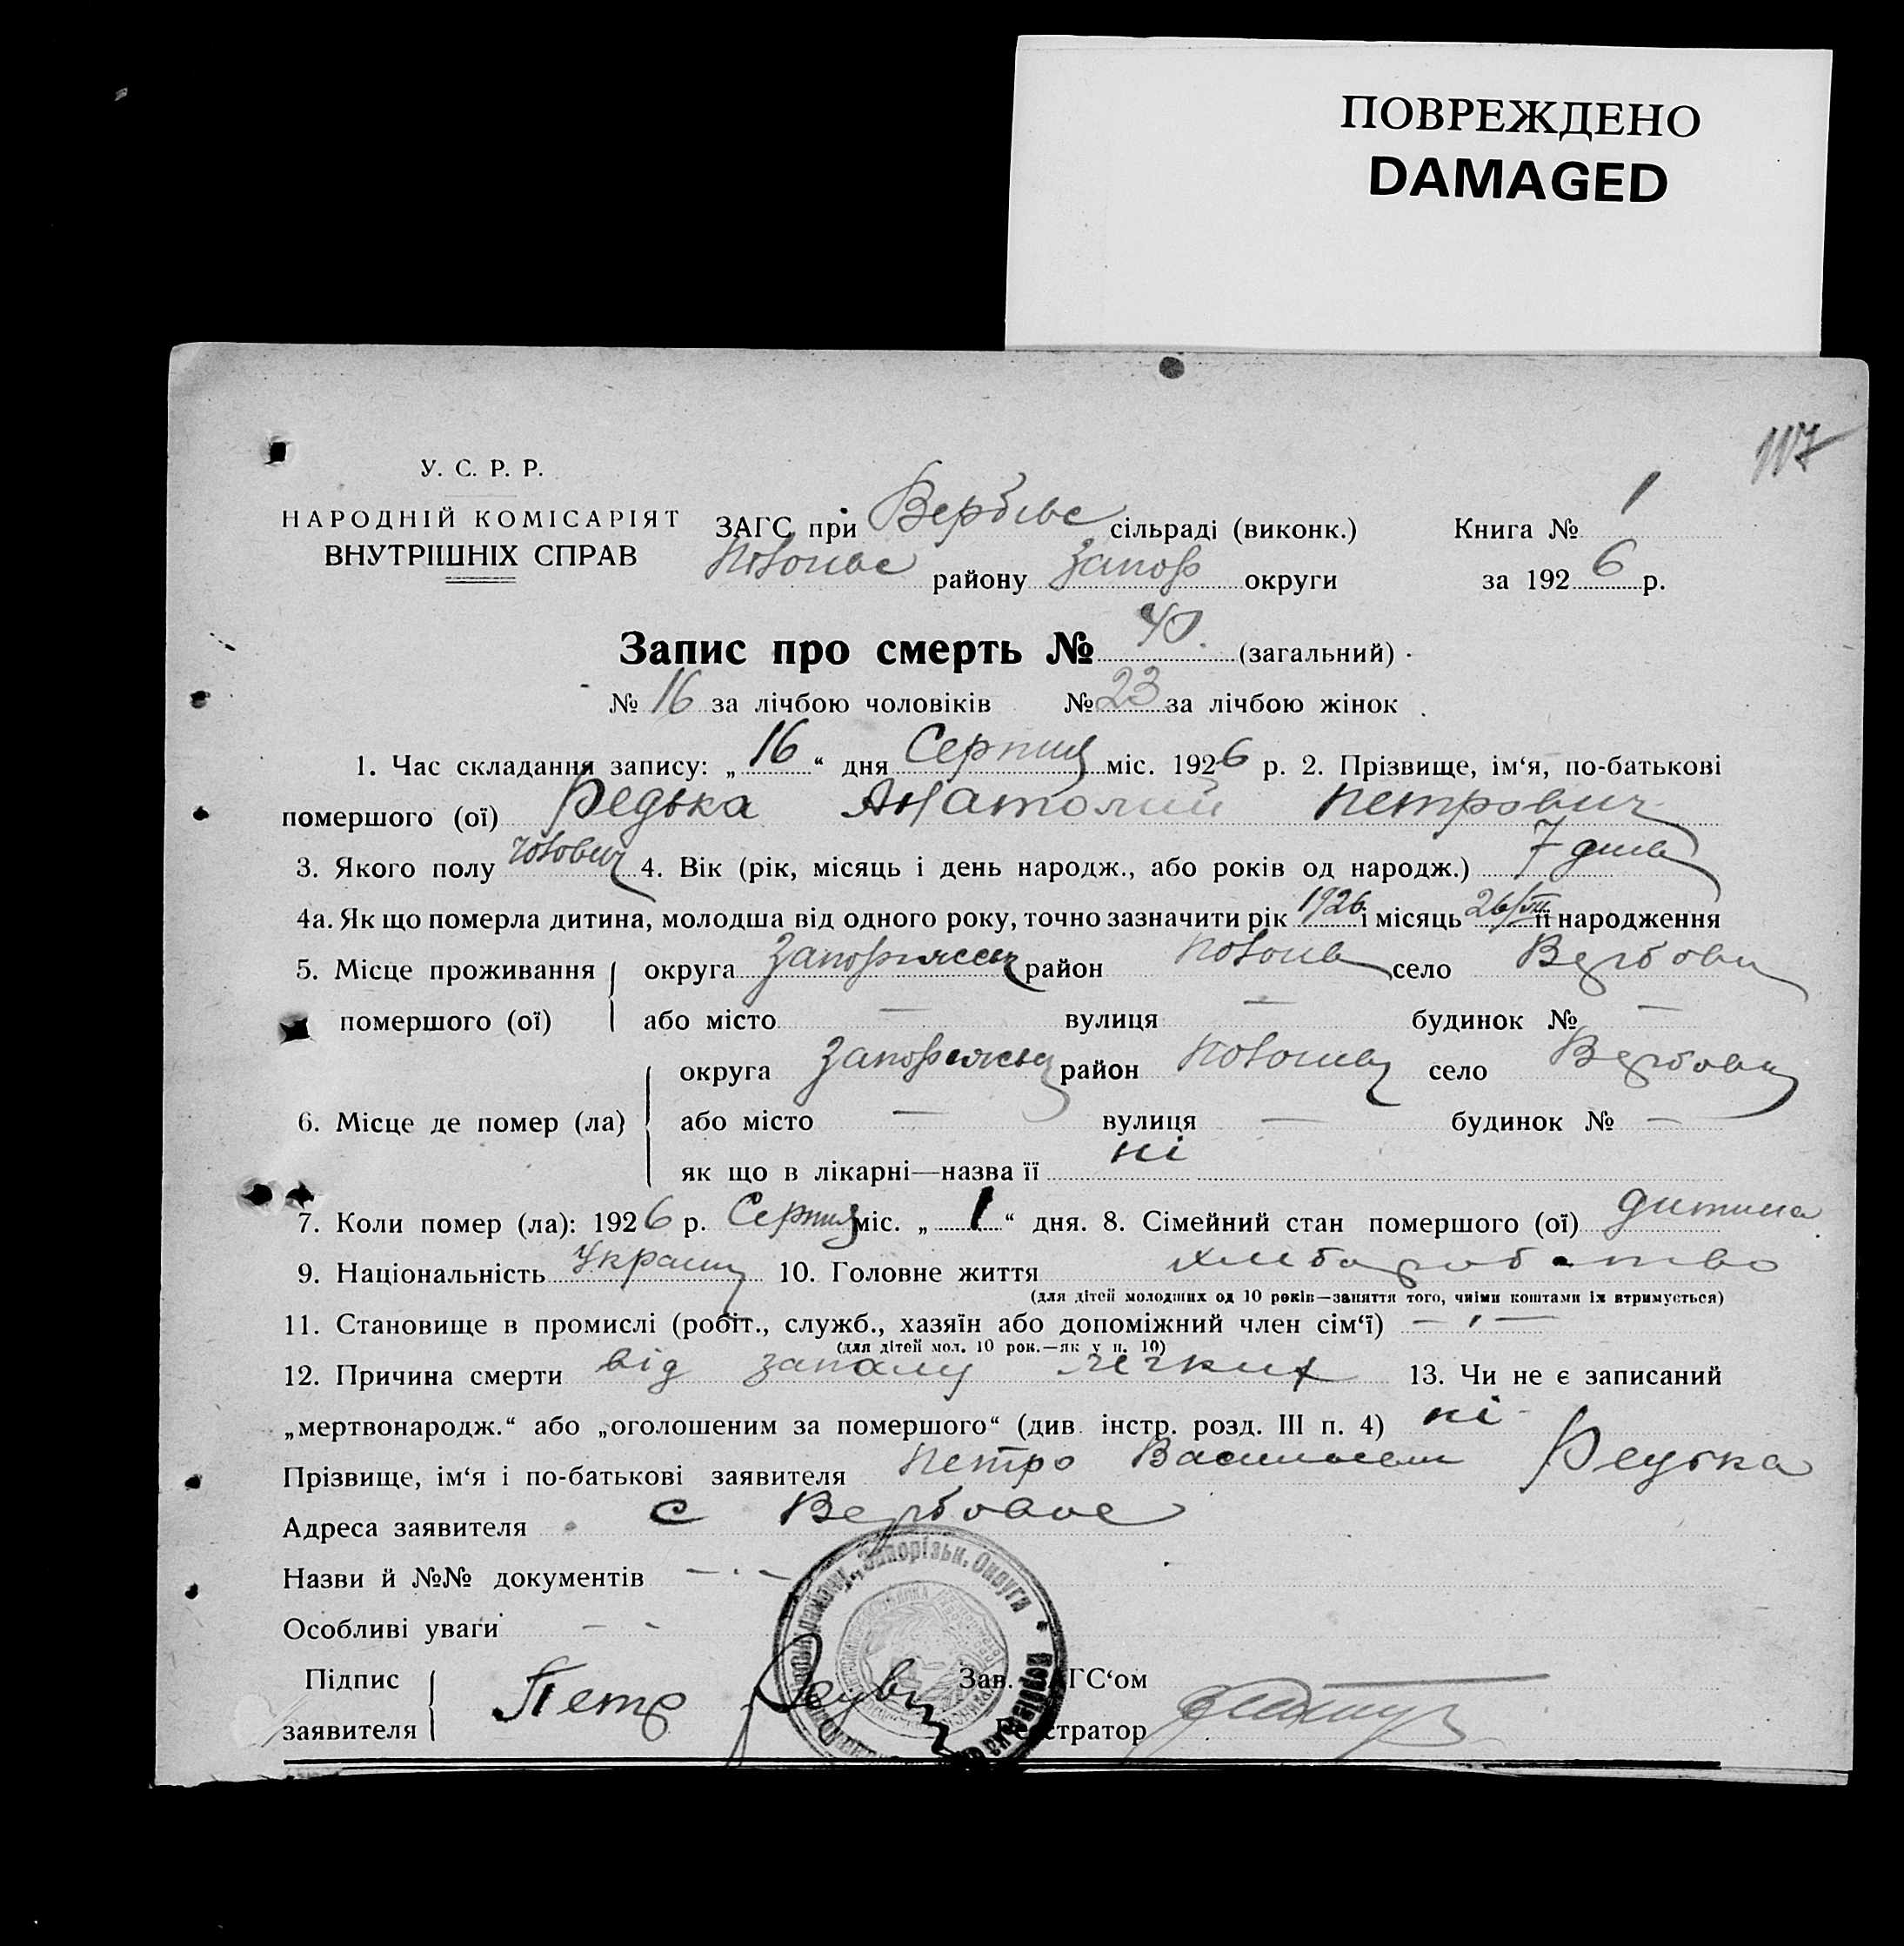 ПОВРЕЖДЕНО
DAMAGED
117
У. С. Р. Р.
НАРОДНІЙ КОМІСАРІЯТ
ВНУТРІШНІХ СПРАВ
ЗАГС при Вербівс сільраді (виконк.) Книга № 1
району Запор округи за 1926 р.
Запис про смерть № 40. (загальний)
№ 16 за лічбою чоловіків № 23 за лічбою жінок
1. Час складання запису: „16“ дня Серпня міс. 1926 р. 2. Прізвище, ім‘я, по-батькові
помершого (ої) Редька Анатолий Петрович
3. Якого полу 4. Вік (рік, місяць і день народж., або років од народж.) 7 днів
4а. Як що померла дитина, молодша від одного року, точно зазначити рік 1926 і місяць 26/VII її народження
5. Місце проживання округа район село
помершого (ої) або місто — вулиця — будинок № —
округа район село
6. Місце де помер (ла) або місто — вулиця — будинок № —
як що в лікарні—назва її ні
7. Коли помер (ла): 1926 р. Серпня міс. „1“ дня. 8. Сімейний стан помершого (ої) дитина
9. Національність 10. Головне життя хлиборобство
(для дітей молодших од 10 років—заняття того, чиїми коштами їх втримується)
11. Становище в промислі (робіт., служб., хазяїн або допоміжний член сім‘ї) — " —
(для дітей мол. 10 рок.—як у п. 10)
12. Причина смерти від запалу легких 13. Чи не є записаний
„мертвонародж.“ або „оголошеним за помершого“ (див. інстр. розд. III п. 4) ні
Прізвище, ім‘я і по-батькові заявителя Петро Реутка
Адреса заявителя с Вербовое
Назви й №№ документів — " —
Особливі уваги — "
Підпис Зав. ЗАГС‘ом
заявителя Петр Регістратор
Запорізьк. Округи